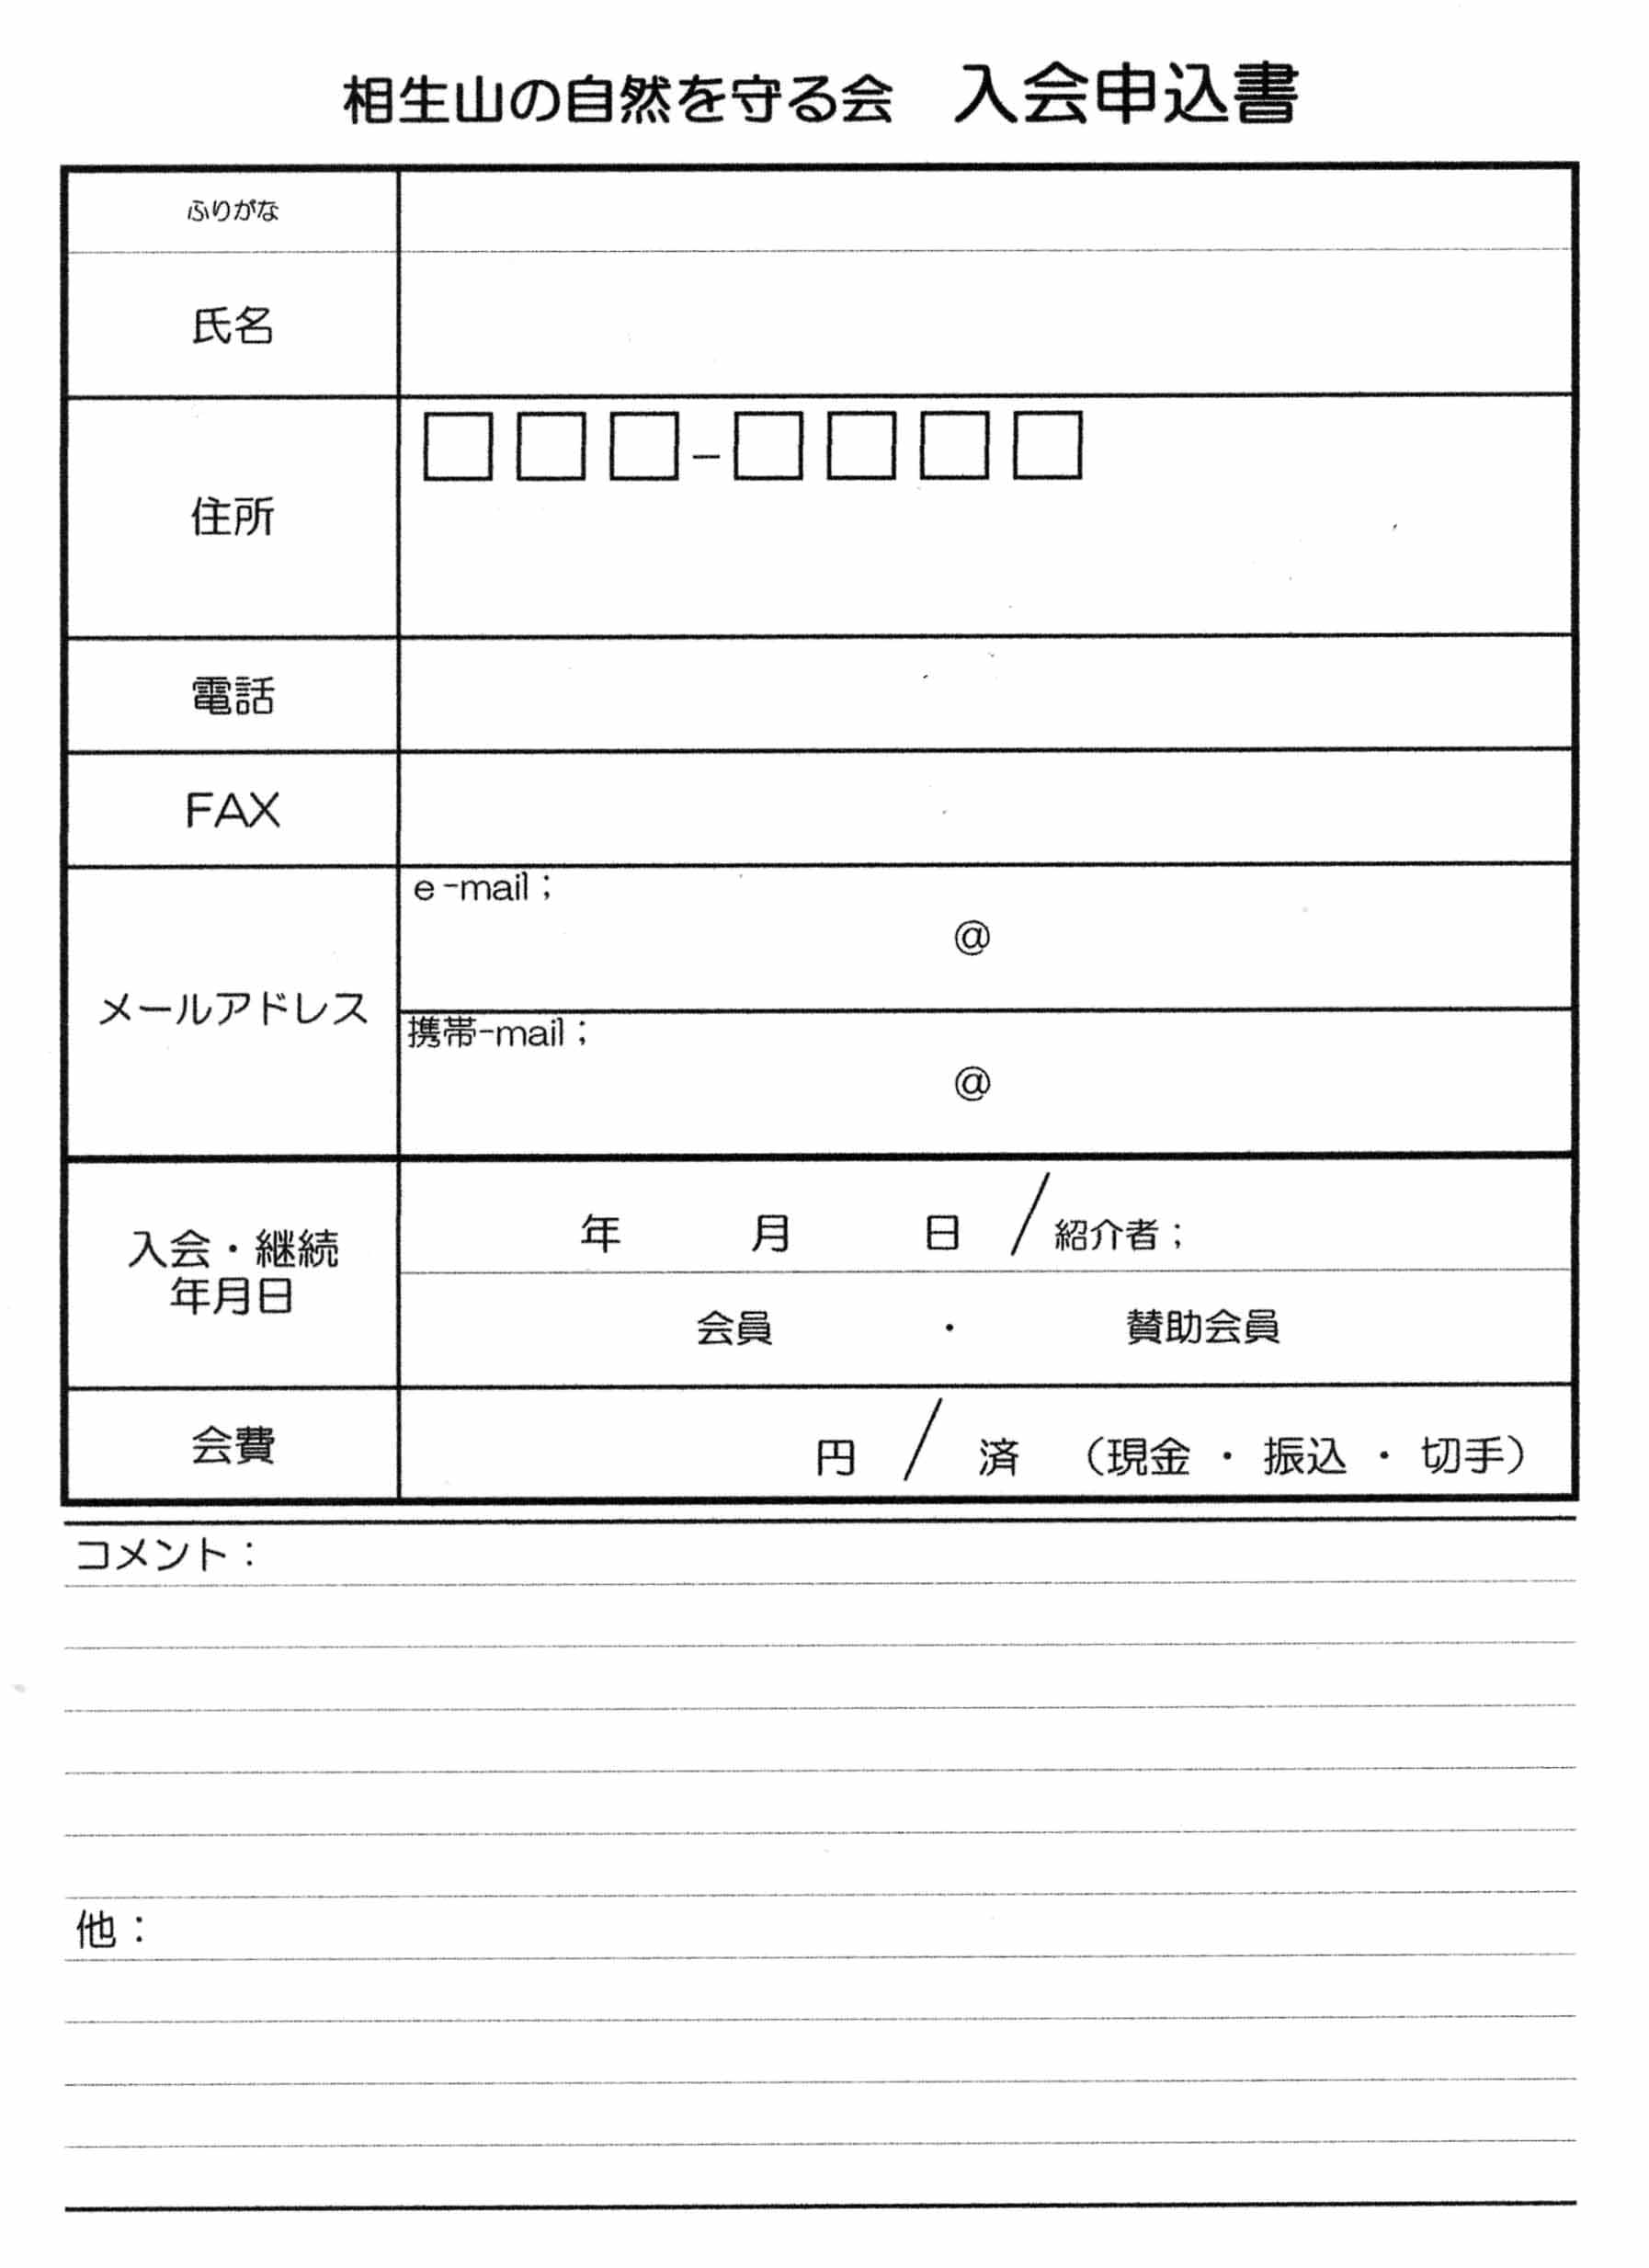 相生山の自然を守る会　入会申込書
ふりがな
氏名
住所
□□□-□□□□
電話
FAX
メールアドレス
e-mail；
@
携帯-mail；
@
入会・継続
年月日
年　月　日 / 紹介者；
会員　・　賛助会員
会費
円 / 済　（現金 ・ 振込 ・ 切手）
コメント：
他：